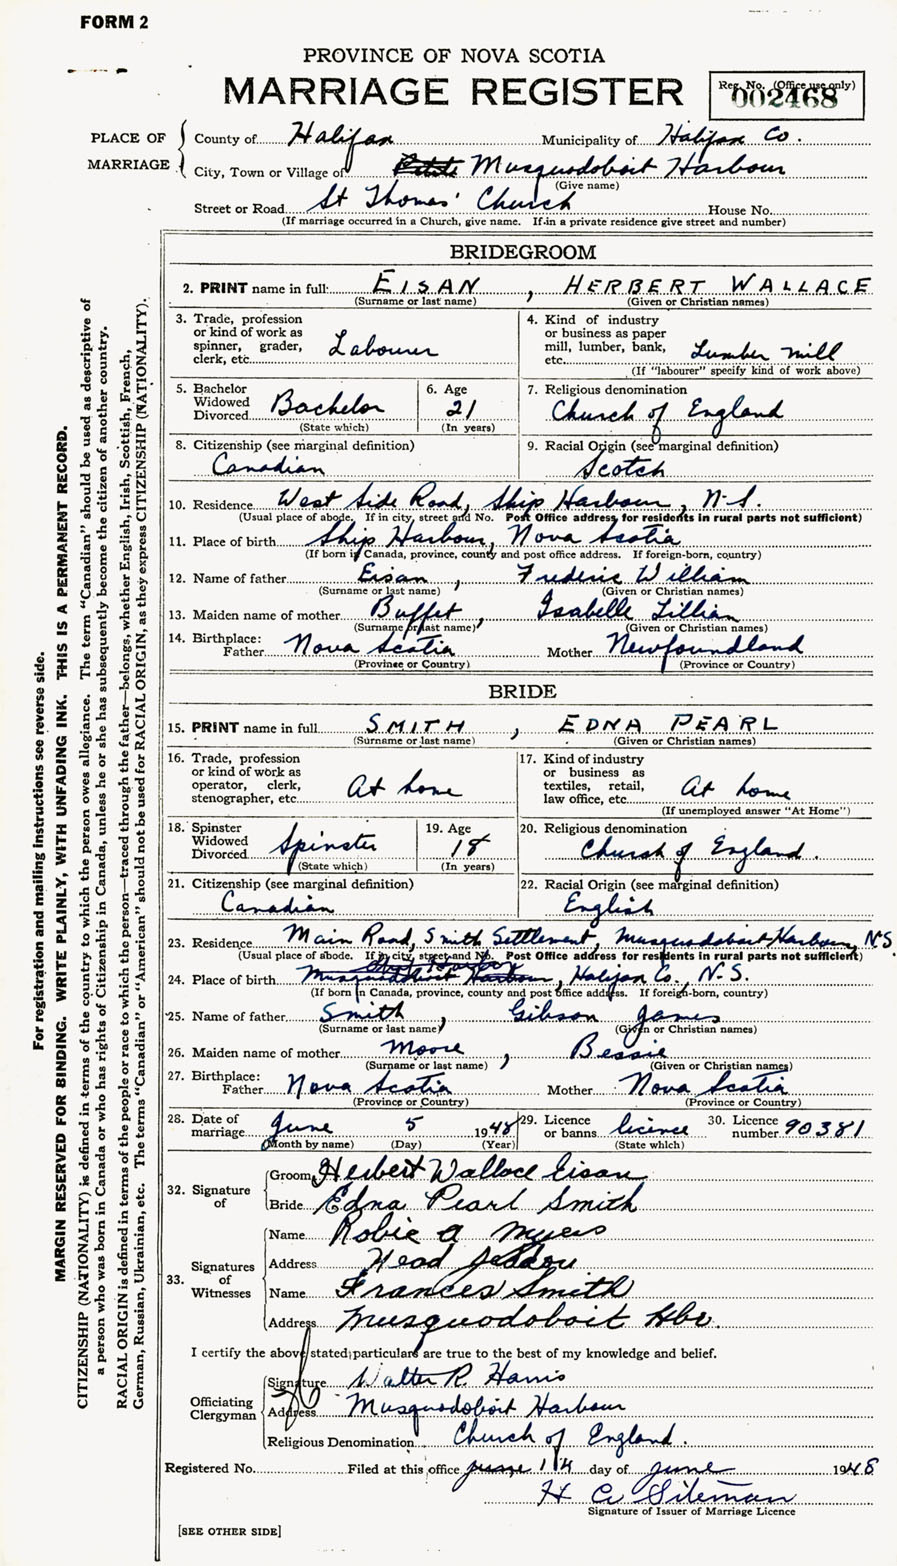 FORM 2
PROVINCE OF NOVA SCOTIA
MARRIAGE REGISTER
Reg. No. (Office use only)
002468
PLACE OF MARRIAGE
County of Halifax Municipality of Halifax Co.
City, Town or Village of Musquodoboit Harbour
(Give name)
Street or Road St Thomas' Church House No.
(If marriage occurred in a Church, give name. If in a private residence give street and number)
BRIDEGROOM
2. PRINT name in full: EISAN, HERBERT WALLACE
(Surname or last name) (Given or Christian names)
3. Trade, profession or kind of work as spinner, grader, clerk, etc. Labourer
4. Kind of industry or business as paper mill, lumber, bank, etc. Lumber mill
(If "labourer" specify kind of work above)
5. Bachelor Widowed Divorced Bachelor
(State which)
6. Age 21
(In years)
7. Religious denomination
Church of England
8. Citizenship (see marginal definition)
Canadian
9. Racial Origin (see marginal definition)
Scotch
10. Residence West Side Road, Ship Harbour, N.S.
(Usual place of abode. If in city, street and No. Post Office address for residents in rural parts not sufficient)
11. Place of birth Ship Harbour, Nova Scotia
(If born in Canada, province, county and post office address. If foreign-born, country)
12. Name of father Eisan, Frederic William
(Surname or last name) (Given or Christian names)
13. Maiden name of mother Buffet, Isabelle Lillian
(Surname or last name) (Given or Christian names)
14. Birthplace:
Father Nova Scotia Mother Newfoundland
(Province or Country) (Province or Country)
BRIDE
15. PRINT name in full SMITH, EDNA PEARL
(Surname or last name) (Given or Christian names)
16. Trade, profession or kind of work as operator, clerk, stenographer, etc. At home
17. Kind of industry or business as textiles, retail, law office, etc. At home
(If unemployed answer "At Home")
18. Spinster Widowed Divorced Spinster
(State which)
19. Age 18
(In years)
20. Religious denomination
Church of England.
21. Citizenship (see marginal definition)
Canadian
22. Racial Origin (see marginal definition)
English
23. Residence Main Road, Smith Settlement, Musquodoboit Harbour, N.S.
(Usual place of abode. If in city, street and No. Post Office address for residents in rural parts not sufficient)
24. Place of birth Musquodoboit Harbour, Halifax Co., N.S.
(If born in Canada, province, county and post office address. If foreign-born, country)
25. Name of father Smith, Gibson James
(Surname or last name) (Given or Christian names)
26. Maiden name of mother Moore, Bessie
(Surname or last name) (Given or Christian names)
27. Birthplace:
Father Nova Scotia Mother Nova Scotia
(Province or Country) (Province or Country)
28. Date of marriage June 5 1948
(Month by name) (Day) (Year)
29. Licence or banns licence
(State which)
30. Licence number 90381
32. Signature of
Groom Herbert Wallace Eisan
Bride Edna Pearl Smith
33. Signatures of Witnesses
Name Robie A Myers
Address Head Jeddou
Name Frances Smith
Address Musquodoboit Hbr.
I certify the above stated particulars are true to the best of my knowledge and belief.
Officiating Clergyman
Signature Walter R. Harris
Address Musquodoboit Harbour
Religious Denomination Church of England.
Registered No. Filed at this office june 14 day of june 1948
H A Sileman
Signature of Issuer of Marriage Licence
[SEE OTHER SIDE]
For registration and mailing instructions see reverse side.
MARGIN RESERVED FOR BINDING. WRITE PLAINLY, WITH UNFADING INK. THIS IS A PERMANENT RECORD.
CITIZENSHIP (NATIONALITY) is defined in terms of the country to which the person owes allegiance. The term "Canadian" should be used as descriptive of
a person who was born in Canada or who has rights of Citizenship in Canada, unless he or she has subsequently become the citizen of another country.
RACIAL ORIGIN is defined in terms of the people or race to which the person—traced through the father—belongs, whether English, Irish, Scottish, French,
German, Russian, Ukrainian, etc. The terms "Canadian" or "American" should not be used for RACIAL ORIGIN, as they express CITIZENSHIP (NATIONALITY).